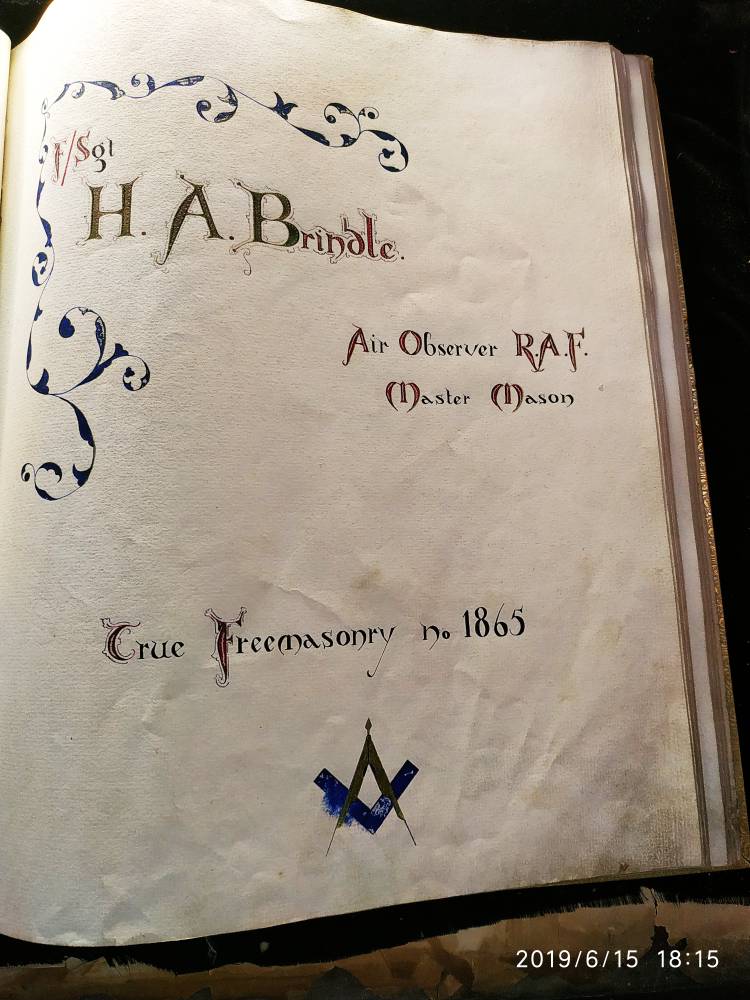 F/Sgt
H. A. Brindle.
Air Observer R.A.F.
Master Mason
True Freemasonry no 1865
2019/6/15 18:15